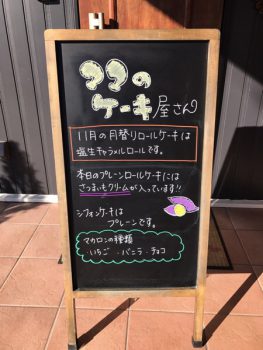 ココの
ケーキ屋さん
11月の月替りロールケーキは
塩生キャラメルロールです。
本日のプレーンロールケーキには
さつまいもクリームが入っています!!
シフォンケーキは
プレーンです。
マカロンの種類
・いちご ・バニラ ・チョコ